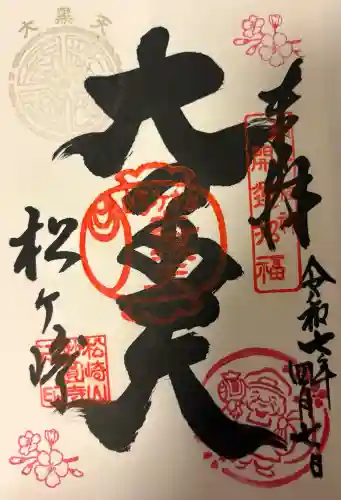 奉拝
令和七年四月七日
大黒天
松ヶ崎
大黒天
開運招福
松崎山
妙圓寺